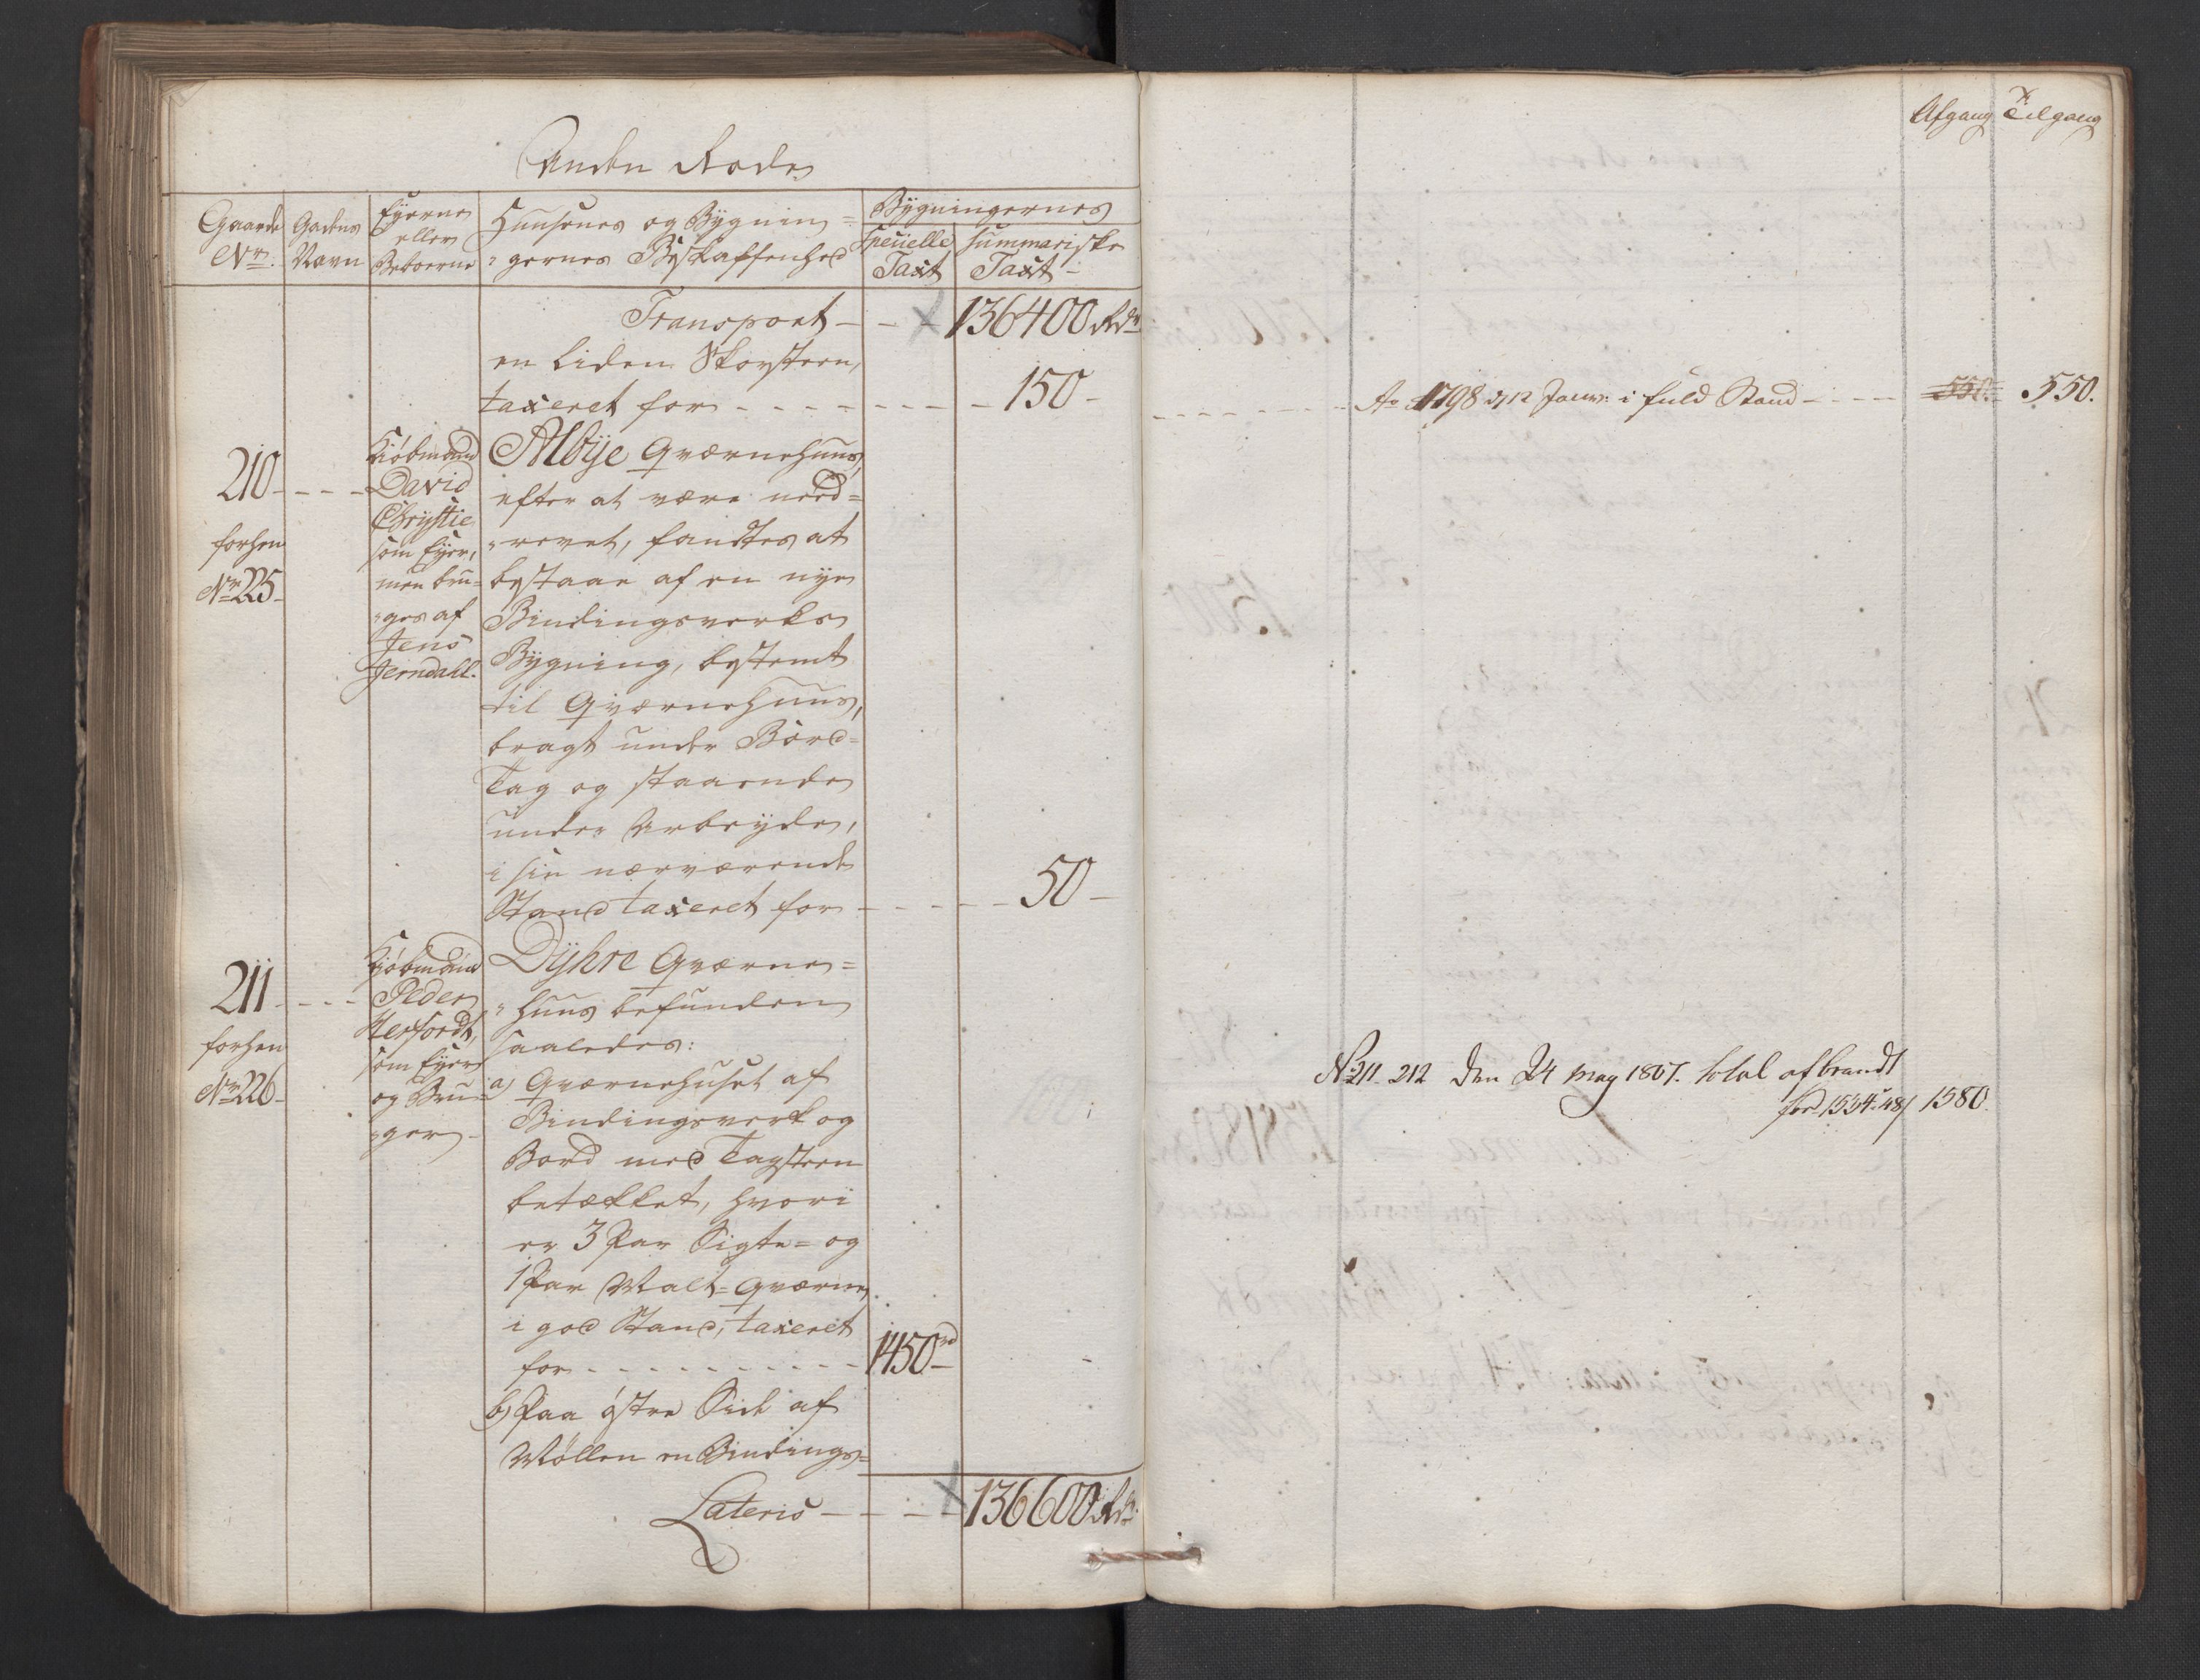 Anden Rode
Gaarde Nr. | Gadens Navn | Eyerne eller Beboerne | Huusenes og Bygnin= | Bygningernes
"gernes Beskaffenhed | Speciele Taxt | Summariske Taxt
Transport - - 136400 Rdr
en liden Skorsteen,
taxeret for - - - - 150 -
210 - - -
forhen
Nr 225 -
Kiöbmand
David
Chrystie
som Eyer,
men bru=
"ges af
Jens
Jerndall.
Alvøe Qværnehuus,
efter at være need=
"revet, fandtes at
bestaae af en nye
Bindingsverks
Bygning, bestemt
til Qværnehuus,
bragt under Bord=
Tag og staaende
under Arbeyde,
i sin nærværende
Stand taxeret for - - - 50 -
211 - - -
forhen
Nr 226 -
Kiöbmand
Peder
Herfordt,
som Eyer
og Bru=
"ger -
Dyhre Qværne=
"huus befunden
saaledes:
a) Qværnehuset af
Bindingsverk og
Bord med Tagsteen
betækket, hvori
er 3 Par Sigte= og
1 Par Malt=Qværne,
i god Stand, taxeret
for - - - - - - - - - - 1450 rd
b) Paa östre Side af
Møllen en Bindings=
Lateris - - - - 136600 Rdr
Afgang Tilgang
Ao 1798 d 12 Janur: i fuld Stand - - - - 550. 550.
No 211 - 212 den 24 May 1807. total afbrandt
1534 48 1580.